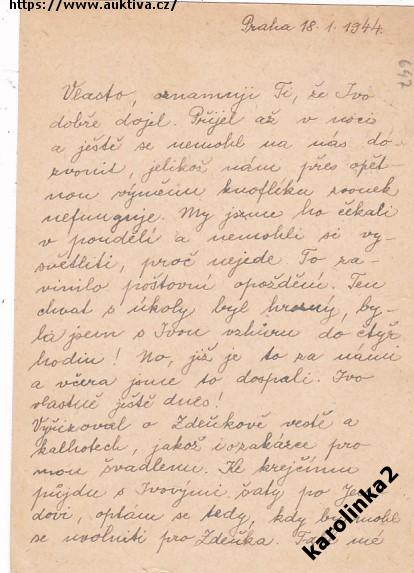 https://www.auktiva.cz/
Praha 18.1.1944.
647
Vlasto, oznamuji Ti, že Ivo
dobře dojel. Přijel až v noci
a ještě se nemohl na nás do
zvonit, jelikož nám přes opět-
nou výměnu knoflíku zvonek
nefunguje. My jsme ho čekali
v pondělí a nemohli si vy-
světliti, proč nejede. To za-
vinilo poštovní opoždění. Ten
chvat s úkoly byl hrozný, by-
la jsem s Ivou vzhůru do čtyř
hodin! No, již je to za námi
a včera jsme to dospali. Ivo
vlastně ještě dnes!
Vyřizoval o Zdeňkově vestě a
kalhotech, jakož i o zakázce pro
mou švadlenu. Ke krejčímu
půjdu s Ivovými šaty po
dovi, optám se tedy, kdy by mohl
se uvolniti pro Zdeňka. mé
karolinka2